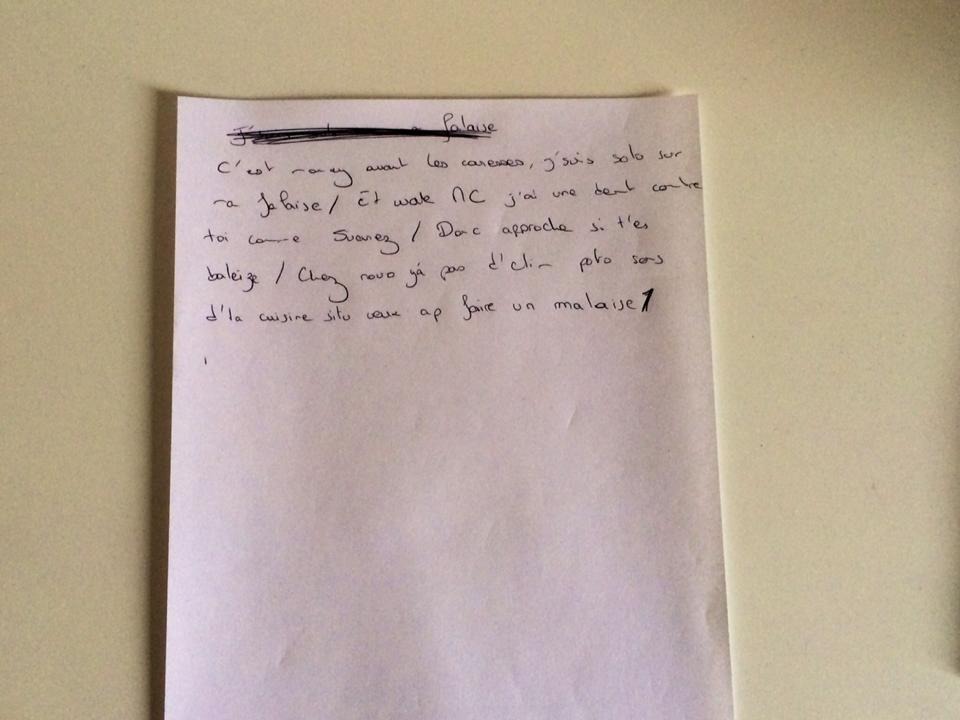 falaise
C'est money avant les caresses, j'suis solo sur
ma falaise / Et wate MC j'ai une dent contre
toi comme Suarez / Donc approche si t'es
baleize / Chez nous y'á pas d'clim poto sors
d'la cuisine situ veux ap faire un malaise /